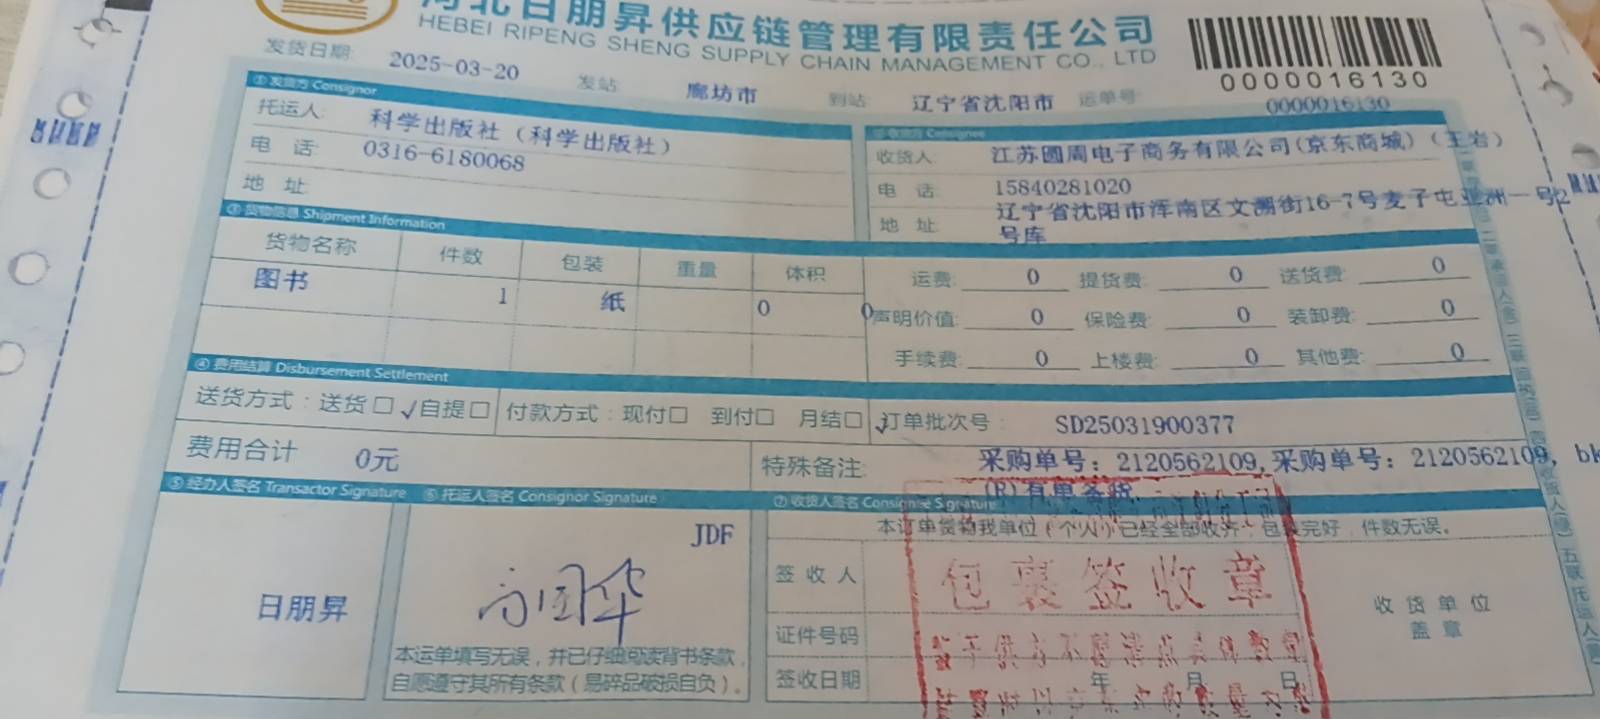 河北日朋昇供应链管理有限责任公司
HEBEI RIPENG SHENG SUPPLY CHAIN MANAGEMENT CO., LTD
0000016130
发货日期: 2025-03-20 发站 廊坊市 到站 辽宁省沈阳市 运单号: 0000016130
① 发货方 Consignor
托运人: 科学出版社（科学出版社）
电 话: 0316-6180068
地 址:
② 收货方 Consignee
收货人: 江苏圆周电子商务有限公司(京东商城)（王岩）
电 话 15840281020
地 址: 辽宁省沈阳市浑南区文溯街16-7号麦子屯亚洲一号2
号库
③ 货物信息 Shipment Information
货物名称 件数 包装 重量 体积
图书 1 纸 0 0
运费: 0 提货费: 0 送货费: 0
声明价值: 0 保险费: 0 装卸费: 0
手续费: 0 上楼费: 0 其他费: 0
④ 费用结算 Disbursement Settlement
送货方式：送货□ ✓自提□ 付款方式：现付□ 到付□ 月结□ ✓订单批次号 SD25031900377
费用合计 0元
特殊备注: 采购单号：2120562109,采购单号：2120562109, bk
⑤ 经办人签名 Transactor Signature ⑥ 托运人签名 Consignor Signature ⑦ 收货人签名 Consignee Signature
日朋昇
JDF
本运单填写无误，并已仔细阅读背书条款，
自愿遵守其所有条款（易碎品破损自负）。
本订单货物我单位（个人）已经全部收齐，包装完好，件数无误。
签 收 人
证件号码
签收日期 年 月 日
收 货 单 位
盖 章
包裹签收章